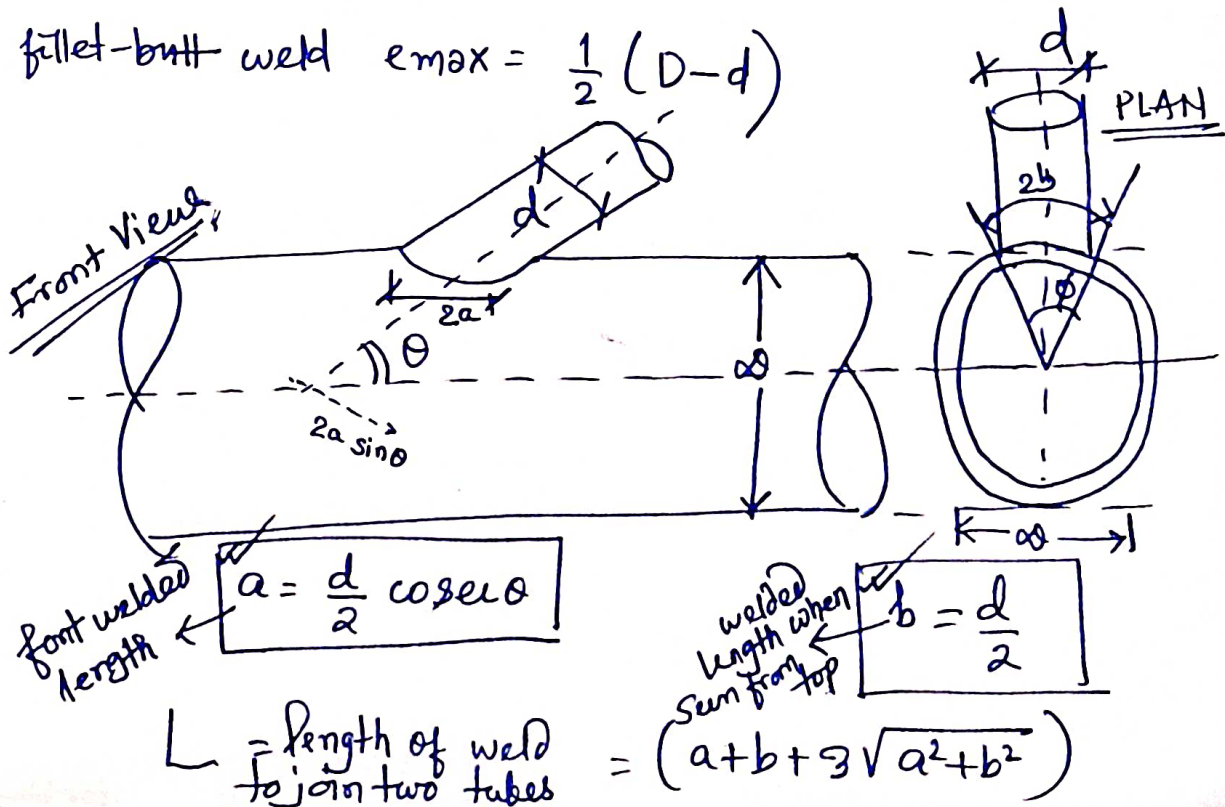 fillet-butt weld emax = 1/2 (D-d)
d
PLAN
Front View
d
2b
2a
θ
φ
2a sinθ
font welded length
a = d/2 cosecθ
welded length when seen from top
b = d/2
L = length of weld to join two tubes = (a+b+3√a²+b²)